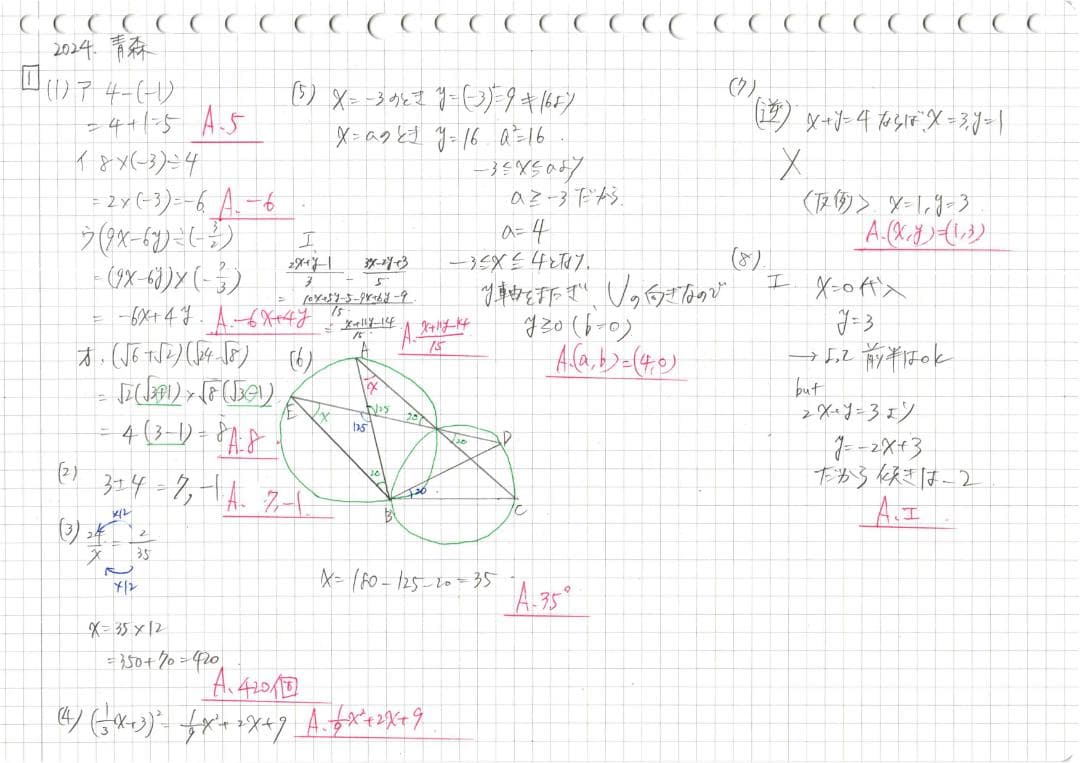 2024. 青森
1
(1) ア 4-(-1)
= 4+1=5 A.5
イ 8×(-3)÷4
= 2×(-3)=-6 A.-6
ウ (9x-6y)÷(-3/2)
= (9x-6y)×(-2/3)
= -6x+4y. A.-6x+4y
エ
(2x+y-1)/3 - (3x-2y+3)/5
= (10x+5y-5-9x+6y-9)/15
= (x+11y-14)/15 A.(x+11y-14)/15
オ. (√6+√2)(√24-√8)
= √2(√3+1)×√8(√3-1)
= 4(3-1)=8 A.8
(2) 3±4=7,-1 A. 7,-1
(3) 24/x = 2/35
×12
×12
x=35×12
=350+70=420
A. 420個
(4) (1/3x+3)²= 1/9x²+2x+9 A. 1/9x²+2x+9
(5) x=-3のとき y=(-3)²=9≠16より
x=aのとき y=16 a²=16.
-3≦x≦aより
a≥-3だから.
a=4
-3≦x≦4となり.
y軸をまたぎ、Uの向きなので
y≥0 (b=0)
A.(a,b)=(4,0)
(6)
A
x
E
x
125
125
20
20
D
20
20
B
C
x=180-125-20=35
A.35°
(7)
(逆) x+y=4ならば、x=3,y=1
×
〈反例〉 x=1,y=3
A.(x,y)=(1,3)
(8).
エ. x=0代入
y=3
→ よって 前半はok
but
2x+y=3より
y=-2x+3
だから 傾きは-2
A.エ